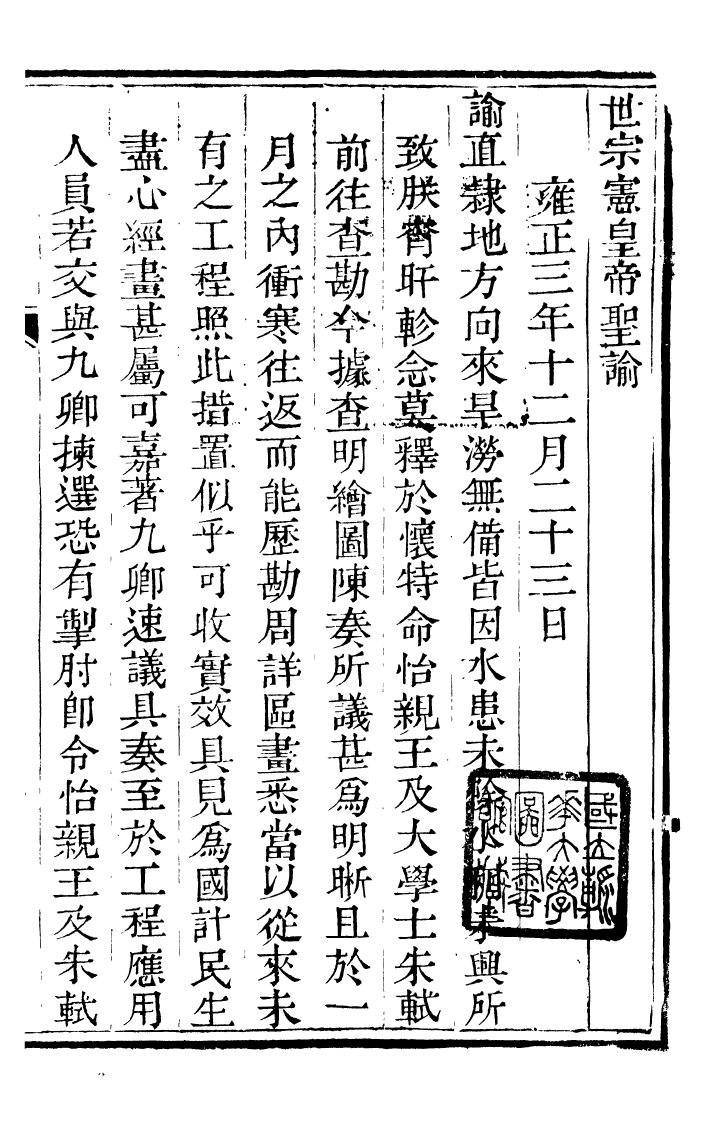 世宗憲皇帝聖諭
雍正三年十二月二十三日
諭直隸地方向來旱澇無備皆因水患未除水利未興所
致朕宵旰軫念莫釋於懷特命怡親王及大學士朱軾
前往查勘今據查明繪圖陳奏所議甚爲明晰且於一
月之內衝寒往返而能歷勘周詳區畫悉當以從來未
有之工程照此措置似乎可收實效具見爲國計民生
盡心經畫甚屬可嘉著九卿速議具奏至於工程應用
人員若交與九卿揀選恐有掣肘卽令怡親王及朱軾
國立清華大學圖書館藏